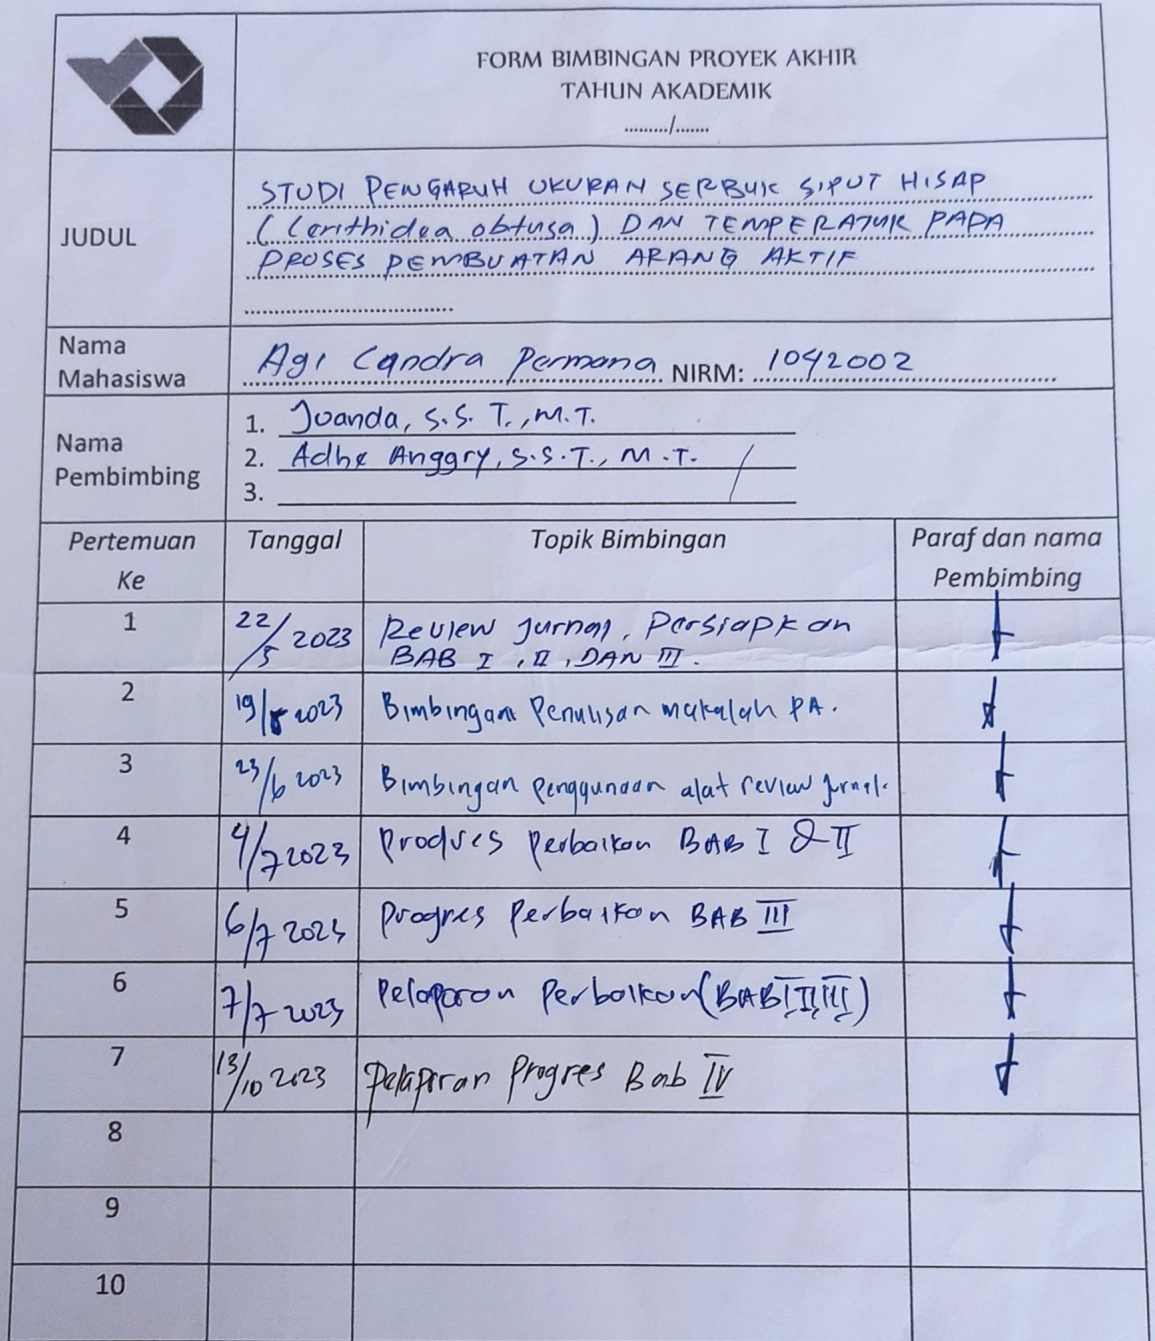 FORM BIMBINGAN PROYEK AKHIR
TAHUN AKADEMIK
........./.......
JUDUL
STUDI PENGARUH UKURAN SERBUK SIPUT HISAP
(Cerithidea obtusa) DAN TEMPERATUR PADA
PROSES PEMBUATAN ARANG AKTIF
Nama
Mahasiswa
Agi Candra Permana NIRM: 1042002
Nama
Pembimbing
1. Juanda, S.S.T., M.T.
2. Adhe Anggry, S.S.T., M.T.
3.
Pertemuan
Ke
Tanggal
Topik Bimbingan
Paraf dan nama
Pembimbing
1
22/5 2023
Review Jurnal, Persiapkan
BAB I, II, DAN III.
2
19/ 2023
Bimbingan Penulisan makalah PA.
3
23/6 2023
Bimbingan Penggunaan alat review jurnal.
4
4/7 2023
Progres Perbaikan BAB I & II
5
6/7 2023
Progres Perbaikan BAB III
6
7/7 2023
Pelaporan Perbaikan (BAB I, II, III)
7
13/10 2023
Pelaporan Progres Bab IV
8
9
10